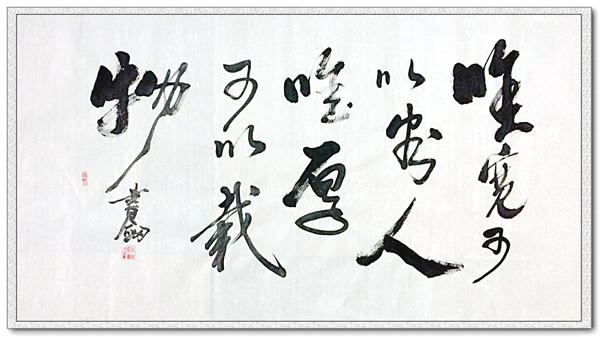 唯寬可
以容人
唯厚
可以載
物